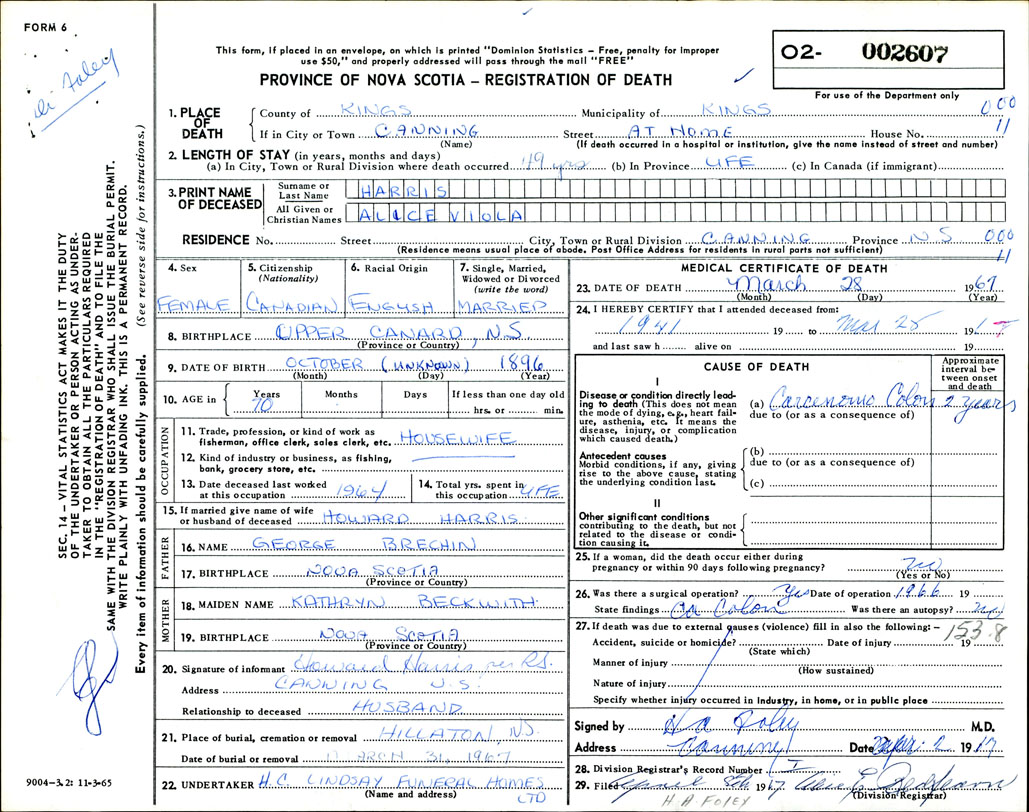 FORM 6
Dr Foley
This form, if placed in an envelope, on which is printed "Dominion Statistics – Free, penalty for improper
use $50," and properly addressed will pass through the mail "FREE"
PROVINCE OF NOVA SCOTIA – REGISTRATION OF DEATH
02- 002607
For use of the Department only
1. PLACE OF DEATH
County of KINGS Municipality of KINGS 000
If in City or Town CANNING Street AT HOME House No. 11
(Name) (If death occurred in a hospital or institution, give the name instead of street and number)
2. LENGTH OF STAY (in years, months and days)
(a) In City, Town or Rural Division where death occurred 49 yrs (b) In Province LIFE (c) In Canada (if immigrant)
3. PRINT NAME OF DECEASED
Surname or Last Name HARRIS
All Given or Christian Names ALICE VIOLA
RESIDENCE No. Street City, Town or Rural Division CANNING Province N.S. 000
(Residence means usual place of abode. Post Office Address for residents in rural parts not sufficient) 11
4. Sex
FEMALE
5. Citizenship
(Nationality)
CANADIAN
6. Racial Origin
ENGLISH
7. Single, Married,
Widowed or Divorced
(write the word)
MARRIED
8. BIRTHPLACE UPPER CANARD, N.S.
(Province or Country)
9. DATE OF BIRTH OCTOBER (UNKNOWN) 1896
(Month) (Day) (Year)
10. AGE in Years Months Days If less than one day old
70 hrs. or min.
OCCUPATION
11. Trade, profession, or kind of work as
fisherman, office clerk, sales clerk, etc. HOUSEWIFE
12. Kind of industry or business, as fishing,
bank, grocery store, etc.
13. Date deceased last worked
at this occupation 1964
14. Total yrs. spent in
this occupation LIFE
15. If married give name of wife
or husband of deceased HOWARD HARRIS
FATHER
16. NAME GEORGE BRECHIN
17. BIRTHPLACE NOVA SCOTIA
(Province or Country)
MOTHER
18. MAIDEN NAME KATHRYN BECKWITH
19. BIRTHPLACE NOVA SCOTIA
(Province or Country)
20. Signature of informant Howard Harris per RS.
Address CANNING N.S.
Relationship to deceased HUSBAND
21. Place of burial, cremation or removal HILLATON, NS.
Date of burial or removal MARCH 31, 1967
22. UNDERTAKER H.C. LINDSAY FUNERAL HOMES
(Name and address) LTD
MEDICAL CERTIFICATE OF DEATH
23. DATE OF DEATH March 28 1967
(Month) (Day) (Year)
24. I HEREBY CERTIFY that I attended deceased from:
1941 19 to Mar 28 19
and last saw h alive on 19
CAUSE OF DEATH
Approximate
interval be-
tween onset
and death
I
Disease or condition directly lead-
ing to death (This does not mean
the mode of dying, e.g., heart fail-
ure, asthenia, etc. It means the
disease, injury, or complication
which caused death.)
(a) Carcenoma Colon 2 years
due to (or as a consequence of)
Antecedent causes
Morbid conditions, if any, giving
rise to the above cause, stating
the underlying condition last.
(b)
due to (or as a consequence of)
(c)
II
Other significant conditions
contributing to the death, but not
related to the disease or condi-
tion causing it.
25. If a woman, did the death occur either during
pregnancy or within 90 days following pregnancy? no
(Yes or No)
26. Was there a surgical operation? Yes Date of operation 1966 19
State findings Ca Colon Was there an autopsy? no
27. If death was due to external causes (violence) fill in also the following: – 153.8
Accident, suicide or homicide? Date of injury 19
(State which)
Manner of injury
(How sustained)
Nature of injury
Specify whether injury occurred in industry, in home, or in public place
Signed by H A Foley M.D.
Address Canning Date Apr. 2 1967
28. Division Registrar's Record Number I
29. Filed April 8th 1967
(Division Registrar)
H. A. FOLEY
SEC. 14 – VITAL STATISTICS ACT MAKES IT THE DUTY
OF THE UNDERTAKER OR PERSON ACTING AS UNDER-
TAKER TO OBTAIN ALL THE PARTICULARS REQUIRED
IN THE "REGISTRATION OF DEATH" AND TO FILE THE
SAME WITH THE DIVISION REGISTRAR WHO SHALL ISSUE THE BURIAL PERMIT.
WRITE PLAINLY WITH UNFADING INK. THIS IS A PERMANENT RECORD.
Every item of information should be carefully supplied. (See reverse side for instructions.)
9004-3.2: 11-3-65